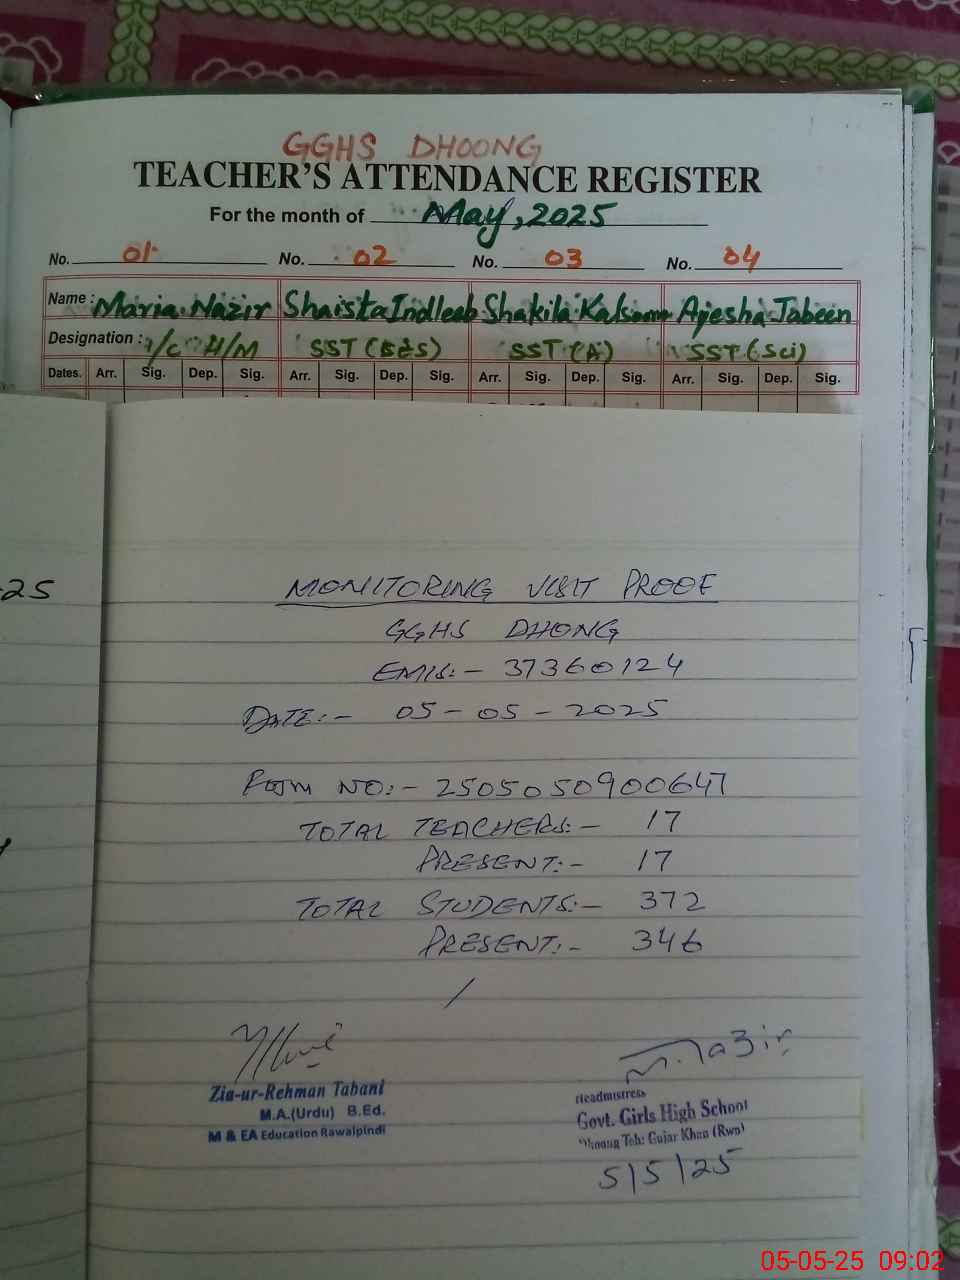 GGHS DHOONG
TEACHER'S ATTENDANCE REGISTER
For the month of May, 2025
No. 01 No. 02 No. 03 No. 04
Name: Maria Nazir Shaista Indleeb Shakila Kalsoom Ayesha Jabeen
Designation: I/C H/M SST (B&S) SST (A) SST (Sci)
Dates. Arr. Sig. Dep. Sig. Arr. Sig. Dep. Sig. Arr. Sig. Dep. Sig. Arr. Sig. Dep. Sig.
-25
MONITORING VISIT PROOF
GGHS DHONG
EMIS:- 37360124
DATE:- 05-05-2025
FORM NO:- 2505050900647
TOTAL TEACHERS:- 17
PRESENT:- 17
TOTAL STUDENTS:- 372
PRESENT:- 346
M. Nazir
Zia-ur-Rehman Tabani
M.A.(Urdu) B.Ed.
M & EA Education Rawalpindi
Headmistress
Govt. Girls High School
Dhoong Teh: Gujar Khan (Rwp)
5/5/25
05-05-25 09:02